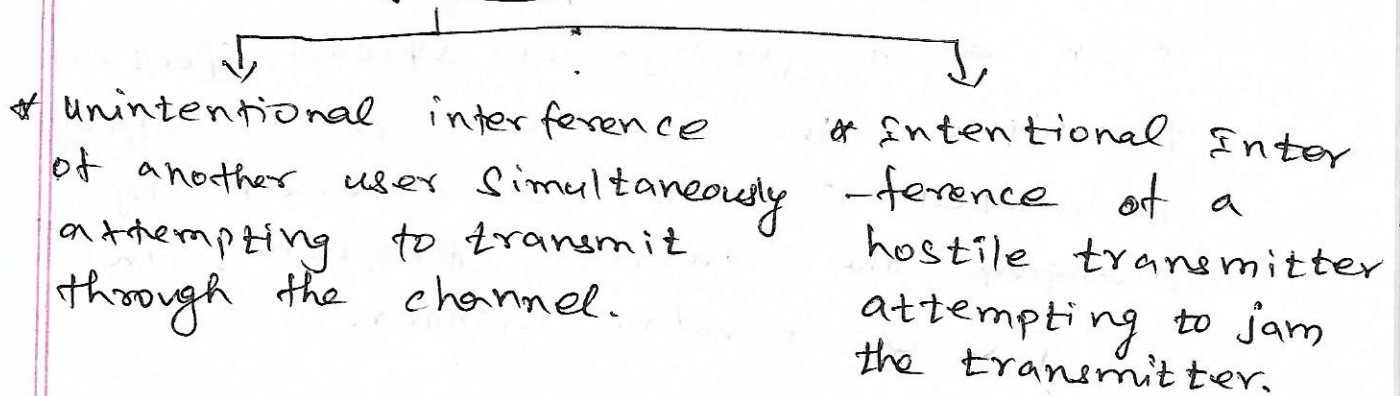 * Unintentional interference
of another user simultaneously
attempting to transmit
through the channel.
* Intentional Inter
-ference of a
hostile transmitter
attempting to jam
the transmitter.